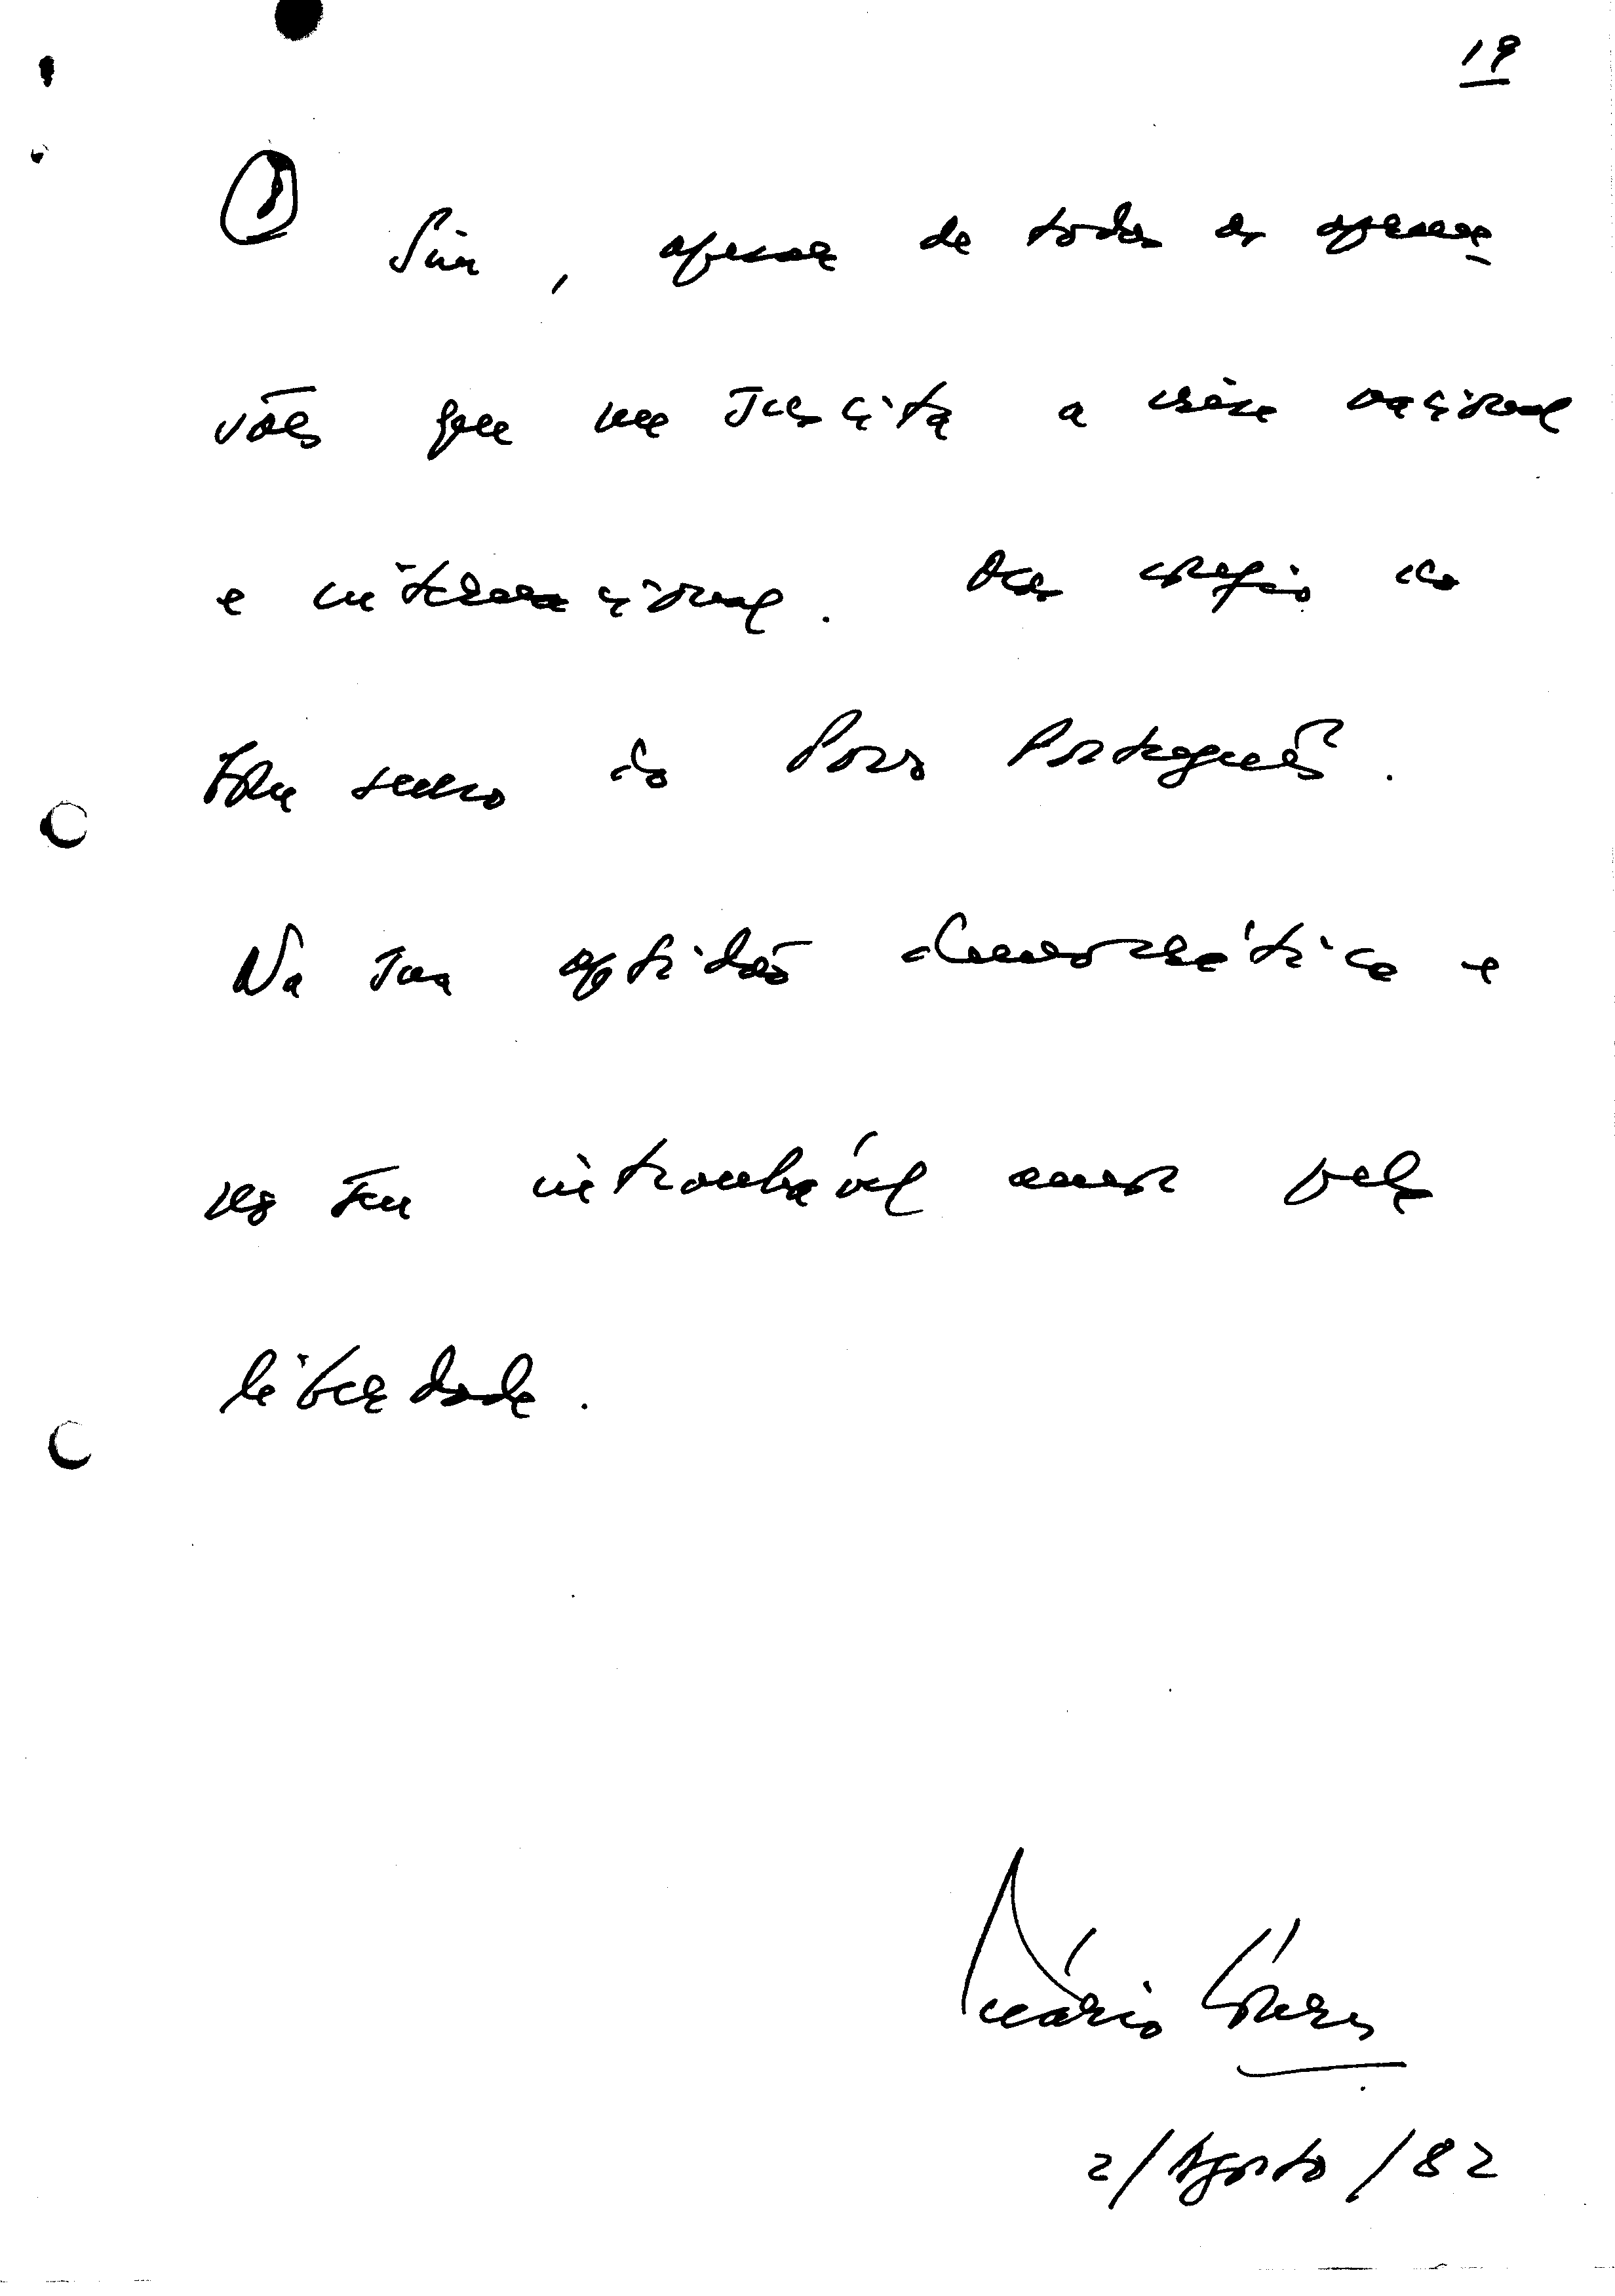 19
Sim, apesar de todas as apreen-
sões que me suscita a crise nacional
e internacional. Mas confio no
bom senso do Povo Português.
Na sua aptidão democrática e
no seu intranhável amor pela
liberdade.
Mário Soares
2/Agosto/82